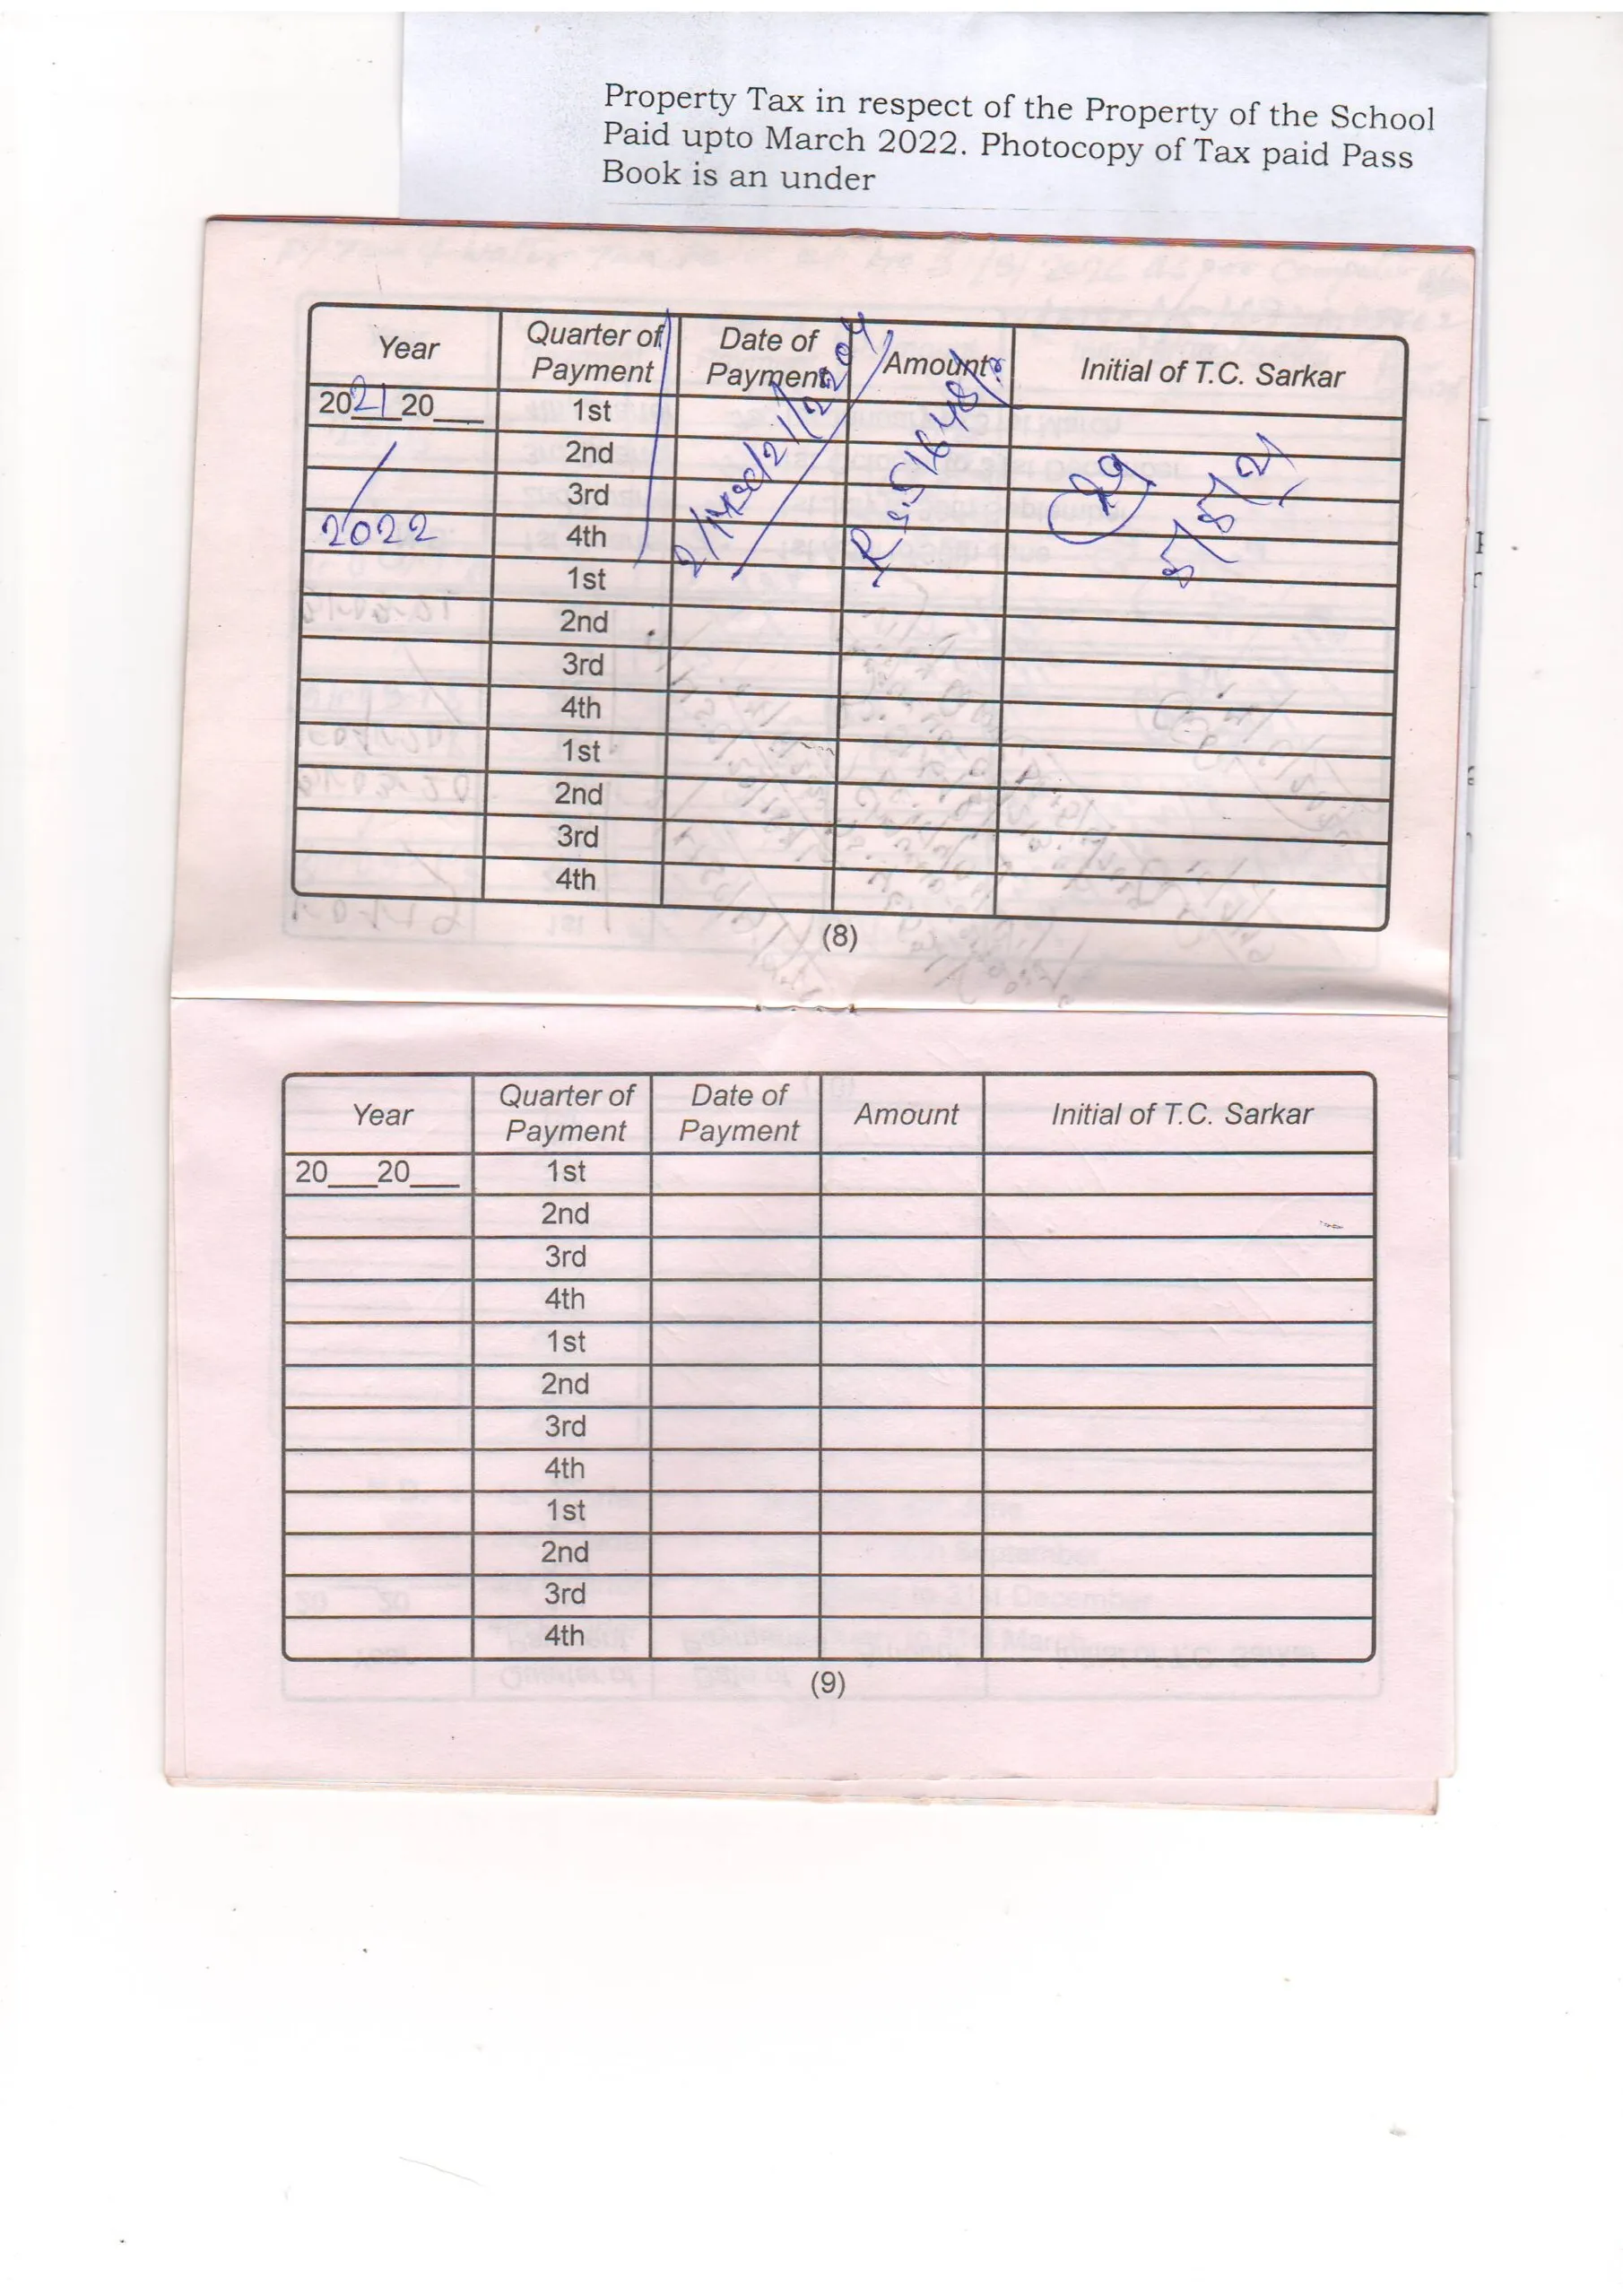 Property Tax in respect of the Property of the School
Paid upto March 2022. Photocopy of Tax paid Pass
Book is an under
Year Quarter of Payment Date of Payment Amount Initial of T.C. Sarkar
2021 20___ 1st
2nd
3rd
2022 4th
5/8/21
1st
2nd
3rd
4th
1st
2nd
3rd
4th
(8)
Year Quarter of Payment Date of Payment Amount Initial of T.C. Sarkar
20___20___ 1st
2nd
3rd
4th
1st
2nd
3rd
4th
1st
2nd
3rd
4th
(9)